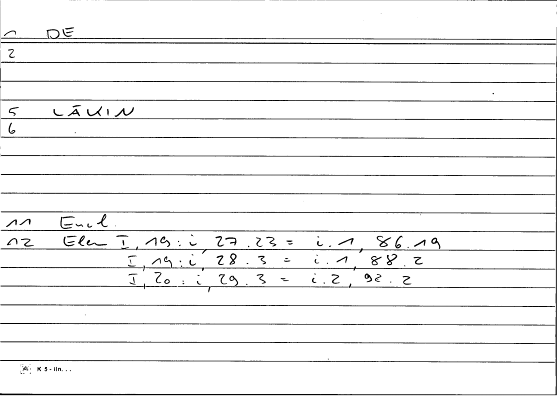 1 DE
2
5 LĀKIN
6
11 Eucl.
12 Elem I, 19 : i, 27.23 = i.1, 86.19
I, 19 : i, 28.3 = i.1, 88.2
I, 20 : i, 29.3 = i.2, 92.2
K 5 - lin...